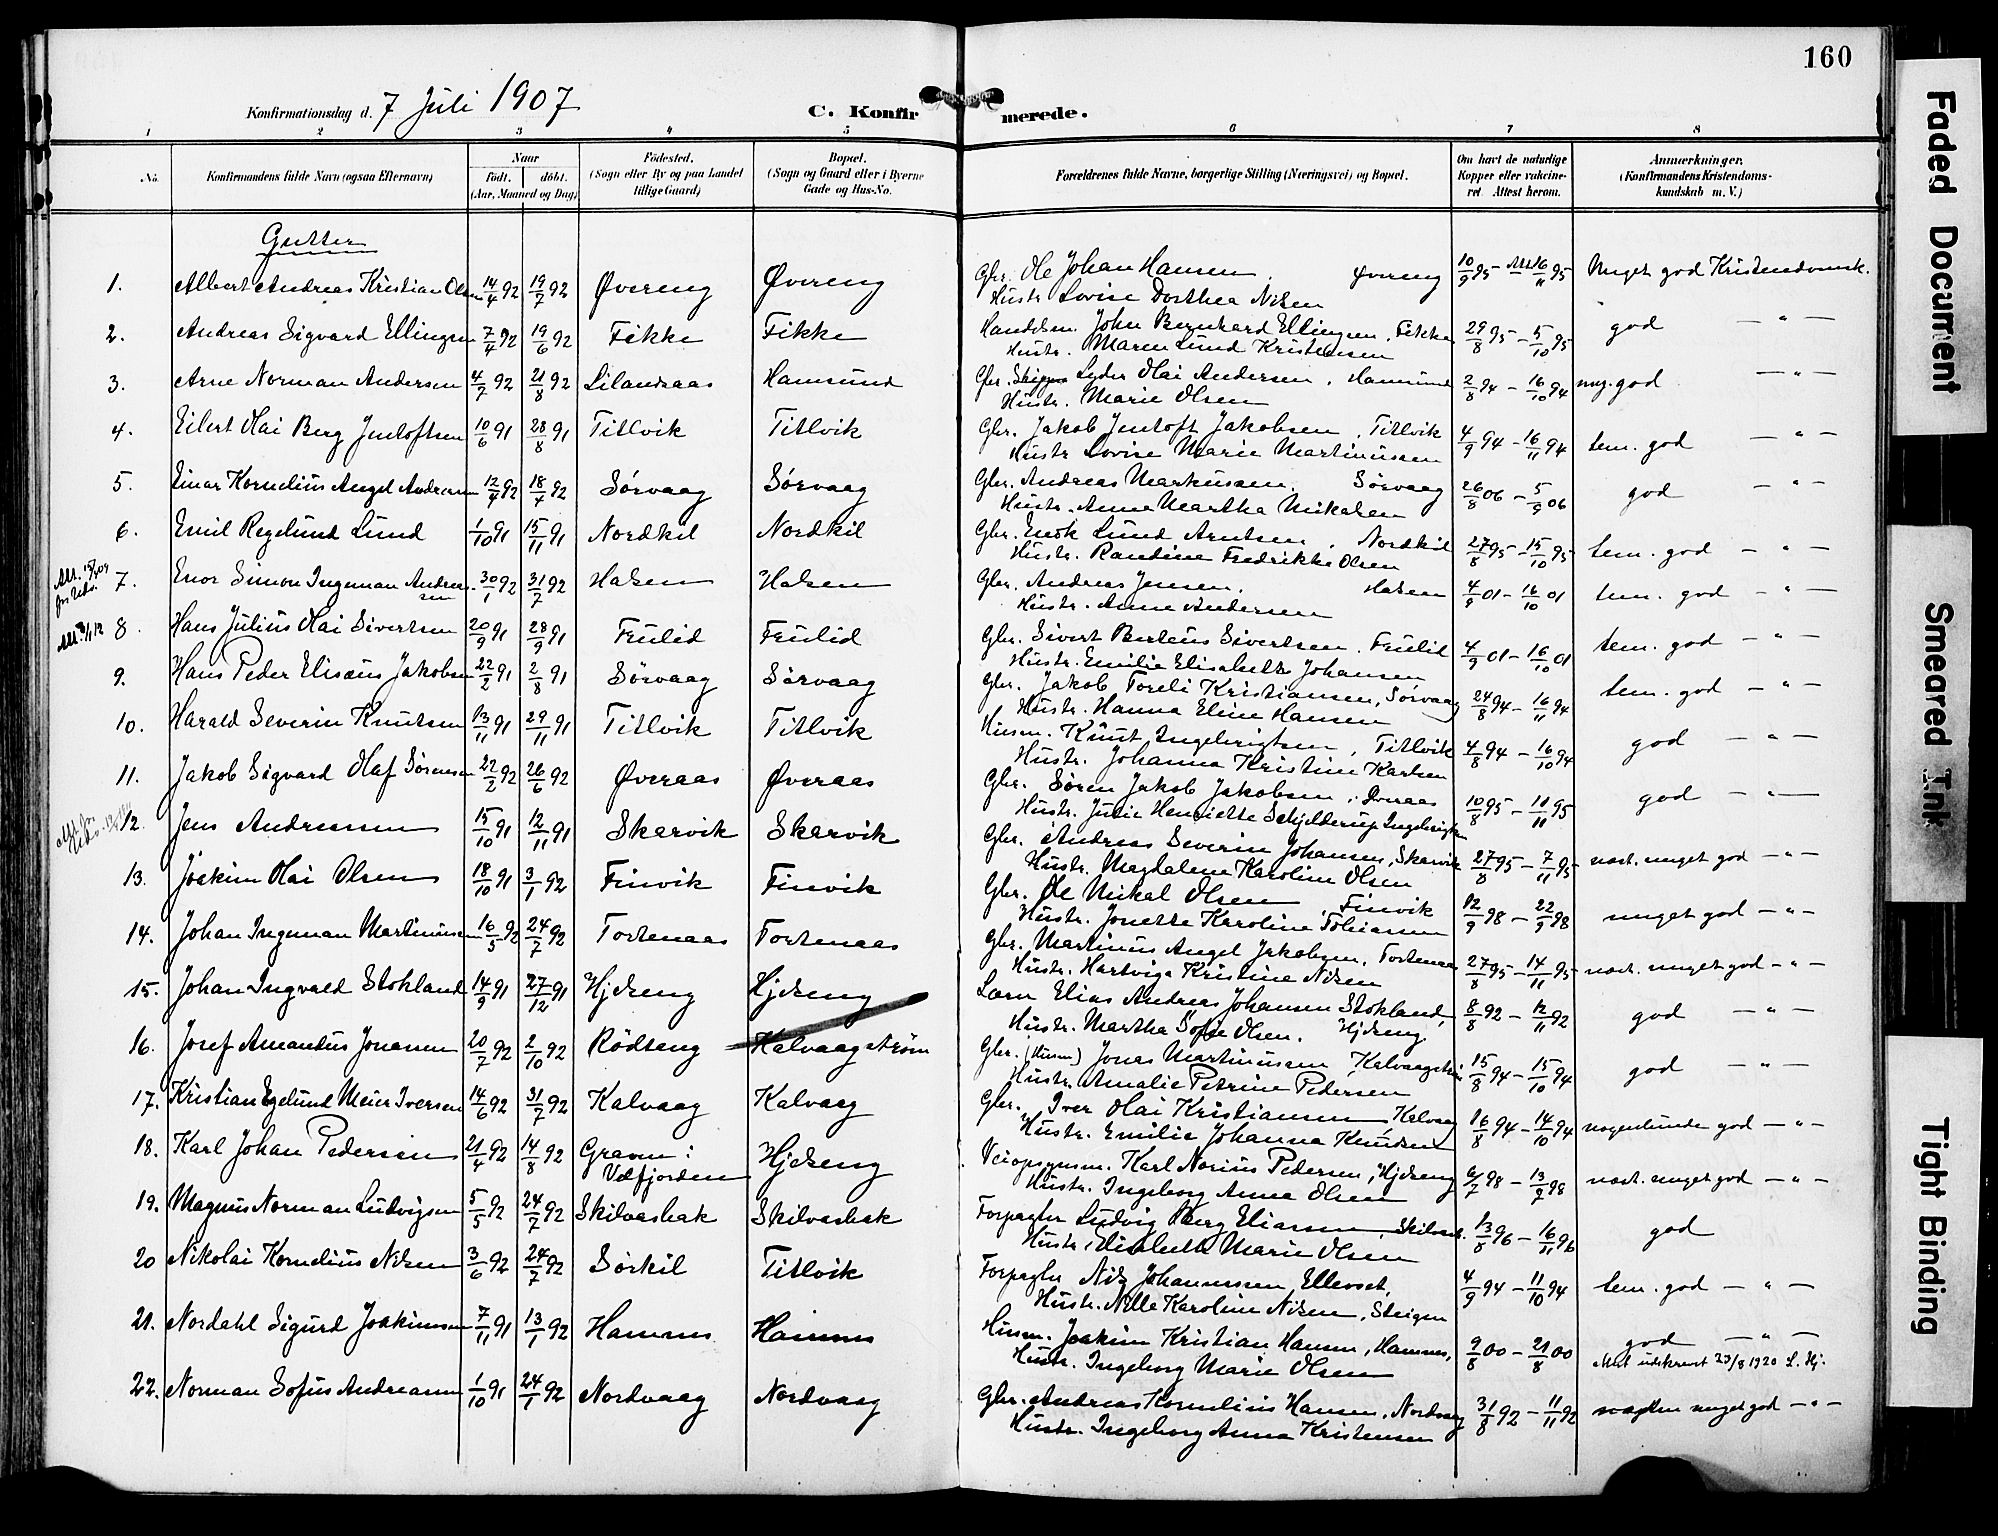 160
Konfirmationsdag d. 7 Juli 1907
C. Konfirmerede.
1 2 3 4 5 6 7 8
No. Konfirmandens fulde Navn (ogsaa Efternavn) Naar født. døbt. (Aar, Maaned og Dag) Fødested. (Sogn eller By og paa Landet tillige Gaard) Bopæl. (Sogn og Gaard eller i Byerne Gade og Hus-No. Forældrenes fulde Navne, borgerlige Stilling (Næringsvei) og Bopæl. Om havt de naturlige Kopper eller vakcineret. Attest herom. Anmærkninger. (Konfirmandens Kristendomskundskab m. V.)
Gutter
1. Albert Andreas Kristian Olsen 14/4 92 19/7 92 Øvereng Øvereng Gbr. Ole Johan Hansen, Øvereng 10/9 95 - 16/11 95 Meget god Kristendomsk.
Hustr. Lovise Dorthea Nilsen
2. Andreas Sigvard Ellingsen 7/4 92 19/6 92 Fikke Fikke Handelsm. John Bernhard Ellingsen, Fikke 29/8 95 - 5/10 95 god — " —
Hustr. Maren Lund Kristensen
3. Arne Norman Andersen 4/7 92 21/8 92 Lilandsaas Hamsund Gbr. Skipper Lyder Olai Andersen, Hamsund 2/8 94 - 16/10 94 meg. god — " —
Hustr. Marie Olsen
4. Eilert Olai Berg Jentoftsen 10/6 91 28/8 91 Titlvik Titlvik Gbr. Jakob Jentoft Jakobsen, Titlvik 4/9 94 - 16/11 94 tem. god — " —
Hustr. Lovise Marie Martinussen
5. Einar Kornelius Angel Andreassen 12/4 92 18/4 92 Sørvaag Sørvaag Gbr. Andreas Markussen, Sørvaag 26/8 06 - 5/9 06 god — " —
Hustr. Anna Martha Mikalsen
6. Emil Regelund Lund 1/10 91 15/11 91 Nordkil Nordkil Gbr. Enok Lund Arntsen, Nordkil 27/8 95 - 15/10 95 tem. god — " —
Hustr. Randine Fredrikke Olsen
7. Enor Simon Ingeman Andreassen 30/1 92 31/7 92 Halsen Halsen Gbr. Andreas Jensen, Halsen 4/9 01 - 16/10 01 tem. god — " —
Hustr. Anne Andersen
8. Hans Julius Olai Sivertsen 20/9 91 28/9 91 Frulid Frulid Gbr. Sivert Berteus Sivertsen, Frulid 4/9 01 - 16/10 01 tem. god — " —
Hustr. Emilie Elisabeth Johansen
9. Hans Peder Elisæus Jakobsen 22/2 91 2/8 91 Sørvaag Sørvaag Gbr. Jakob Toreli Kristiansen, Sørvaag 24/8 94 - 16/11 94 tem. god — " —
Hustr. Hanna Eline Hansen
10. Harald Severin Knutsen 13/11 91 29/11 91 Titlvik Titlvik Husm. Knut Ingebrigtsen, Titlvik 4/8 94 - 16/10 94 god — " —
Hustr. Johanna Kristine Karlsen
11. Jakob Sigvard Olaf Sørensen 22/2 92 26/6 92 Øveraas Øveraas Gbr. Søren Jakob Jakobsen, Øveraas 10/8 95 - 11/11 95 god — " —
Hustr. Julie Henriette Schjelderup Ingebrigtsen
12. Jens Andreassen 15/10 91 12/11 91 Skarvik Skarvik Gbr. Andreas Severin Johansen, Skarvik 27/8 95 - 7/11 95 næst. meget god — " —
Hustr. Magdalene Karoline Olsen
13. Joakim Olai Olsen 18/10 91 3/1 92 Finvik Finvik Gbr. Ole Mikal Olsen, Finvik 12/9 98 - 22/9 98 meget god — " —
Hustr. Jonette Karoline Tobiassen
14. Johan Ingeman Martinussen 16/5 92 24/7 92 Tortenaas Tortenaas Gbr. Martinus Angel Jakobsen, Tortenaas 27/8 95 - 14/11 95 næst. meget god — " —
Hustr. Hartviga Kristine Nilsen
15. Johan Ingvald Stokland 14/9 91 27/12 91 Hjelseng Hjelseng Lærer Elias Andreas Johansen Stokland, 8/8 92 - 12/11 92 god — " —
Hustr. Martha Sofie Olsen. Hjelseng
16. Josef Amandus Jonassen 20/7 92 2/10 92 Rødseng Kalvaagstrøm Gbr. (Husm) Jonas Martinussen Kalvaagstrøm 15/8 94 - 15/10 94 god — " —
Hustr. Amalie Petrine Pedersen
17. Kristian Egelund Meier Iversen 14/6 92 31/7 92 Kalvaag Kalvaag Gbr. Iver Olai Kristiansen Kalvaag 16/8 94 - 14/10 94 nogenlunde god — " —
Hustr. Emilie Johanna Knudsen
18. Karl Johan Pedersen 21/4 92 14/8 92 Graven i Velfjorden Hjelseng Veiopsynsm. Karl Norius Pedersen, Hjelseng 6/7 98 - 13/7 98 næst. meget god — " —
Hustr. Ingeborg Anna Olsen
19. Magnus Norman Ludvigsen 5/5 92 24/7 92 Skilvasbak Skilvasbak Forpagter Ludvig Berg Eliassen, Skilvasb. 13/8 96 - 16/11 96 god
Hustr. Elisabeth Marie Olsen
20 Nikolai Kornelius Nilsen 3/6 92 24/7 92 Sørkil Titlvik Forpagter Nils Johannessen Ellevset, 4/9 94 - 11/10 94 tem. god — " —
Hustr. Nille Karoline Nilsen, Steigen
21. Nordahl Sigurd Joakimsen 7/11 91 13/1 92 Hamnes Hamnes Husm. Joakim Kristian Hansen, Hamnes, 9/8 00 - 21/8 00 god — " —
Hustr. Ingeborg Marie Olsen Attest utskrevet 23/8 1920 L. Hj.
22. Norman Sofus Andreassen 1/10 91 24/1 92 Nordvaag Nordvaag Gbr. Andreas Kornelius Hansen, Nordvaag 31/8 92 - 11/11 92 næsten meget god — " —
Hustr. Ingeborg Anna Kristensen
Faded Document
Smeared Ink
Tight Binding